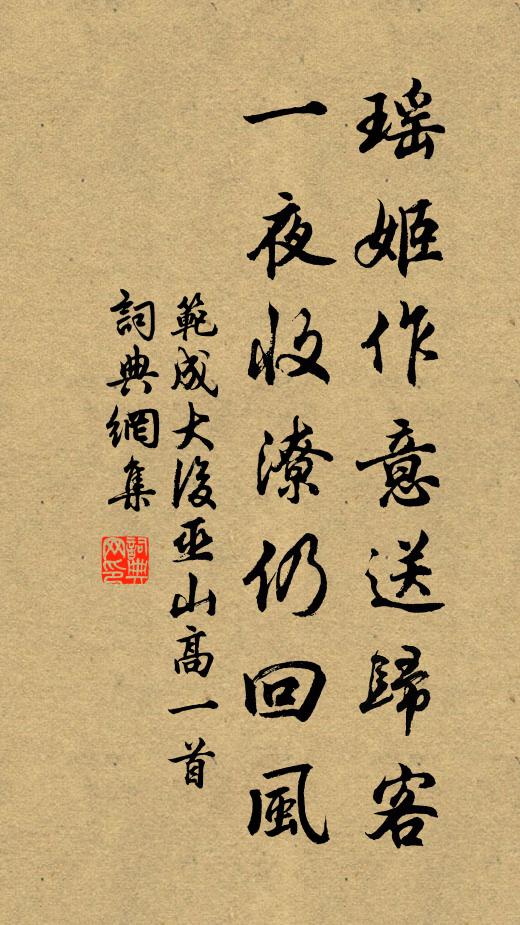 瑶姬作意送歸客
一夜收潦仍回風
範成大後巫山高一首
詞典網集
詞典网印